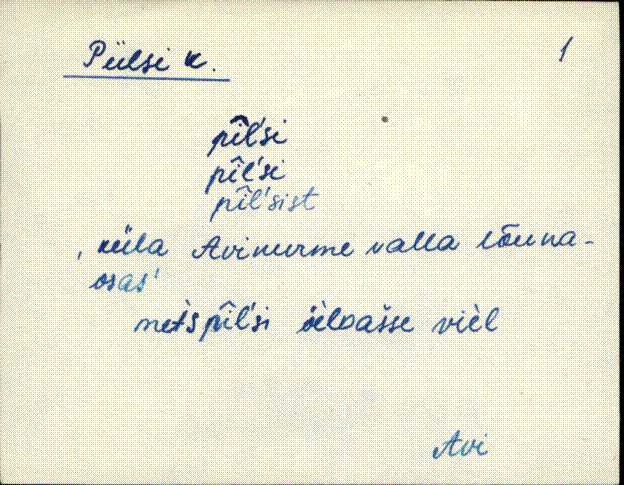 Piilsi k.
1
pi̮l'si
pîl'si
pîl'sist
'küla Avinurme valla lõuna-
osas'
met's pîl'si üèldašse vièl
Avi